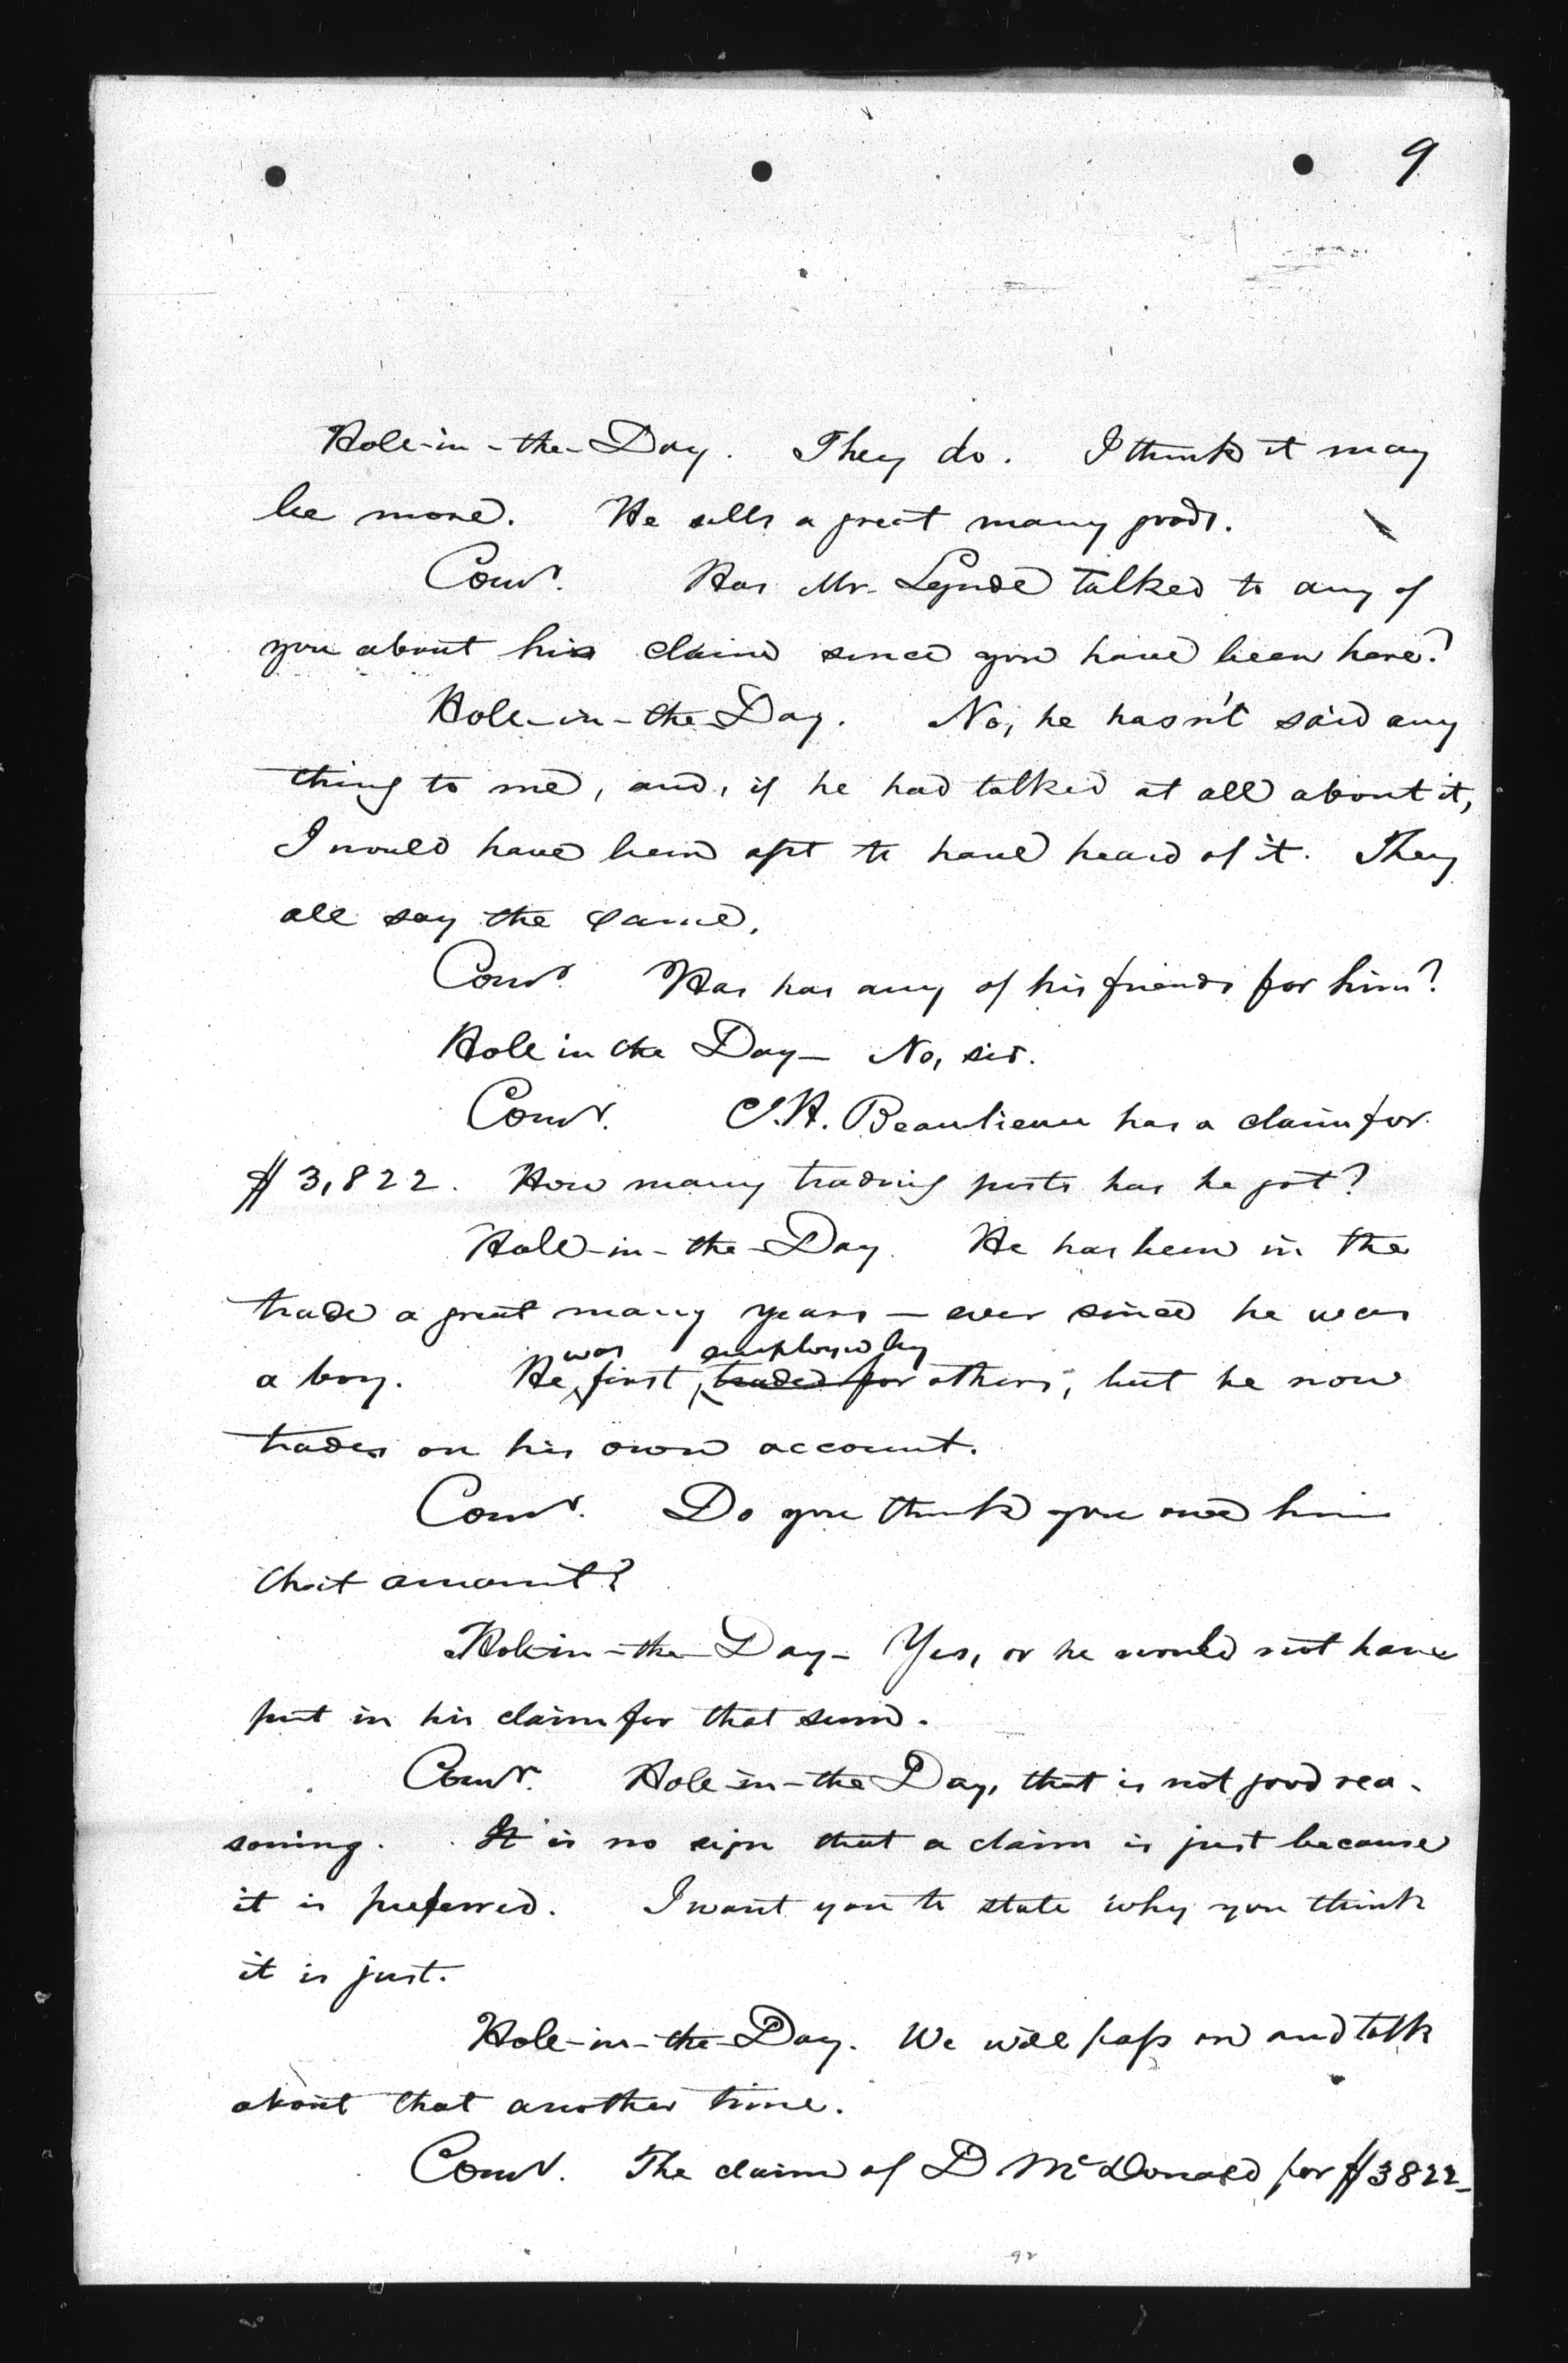 9
Hole-in-the-Day. They do. I think it may
be more. He sells a great many goods.
Comr. Has Mr. Lynde talked to any of
you about his claim since you have been here?
Hole-in-the-Day. No, he hasn't said any
thing to me, and, if he had talked at all about it,
I would have been apt to have heard of it. They
all say the same.
Comr. Has has any of his friends for him?
Hole in the Day— No, sir.
Comr. C.H. Beaulieau has a claim for
$3,822. How many trading posts has he got?
Hole-in-the-Day. He has been in the
trade a great many years — ever since he was
was employed by
a boy. He first traded for others, but he now
trades on his own account.
Comr. Do you think you owe him
that amount?
Hole-in-the-Day— Yes, or he would not have
put in his claim for that sum.
Comr. Hole-in-the Day, that is not good rea-
soning. It is no sign that a claim is just because
it is preferred. I want you to state why you think
it is just.
Hole-in-the-Day. We will pass on and talk
about that another time.
Comr. The claim of D McDonald for $3822—
92